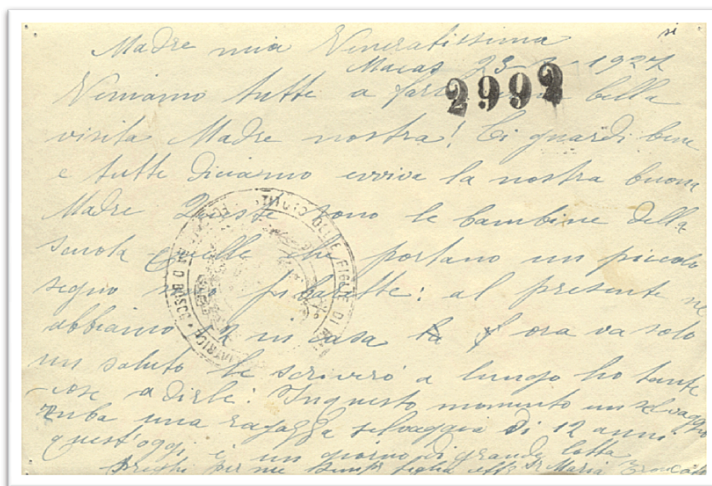 Madre mia Veneratissima
Macas 23 1927
2992
Veniamo tutte a farle bella
visita Madre nostra! Ci guardi bene
e tutte diciamo evviva la nostra buona
Madre Queste sono le bambine della
scuola quelle che portano un piccolo
segno son fidanzate: al presente ne
abbiamo in casa ora va solo
un saluto le scriverò a lungo ho tante
cose a dirle: In questo momento un selvaggio
ruba una ragazza selvaggia di 12 anni.
quest'oggi è un giorno di grande lotta
preghi per me figlia Sr Maria
ISTITUTO DELLE FIGLIE DI M. AUSILIATRICE • D. BOSCO